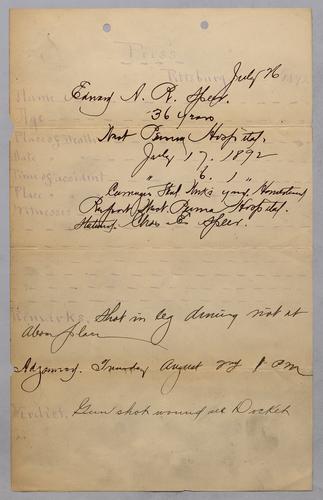 Press
Pittsburg July 26 1892
Name Edward A. R. Speer.
Age 36 years
Place of Death West Penna Hospital.
Date July 17. 1892
Time of accident " 6. 1 "
Place Carnegie Steel Works Homestead
Witnesses Report West Penna Hospital.
Statement Chas E Speer.
Remarks. Shot in leg during riot at
above place
Adjourned. Tuesday August 1 P M
Verdict. Gun shot wound see Docket